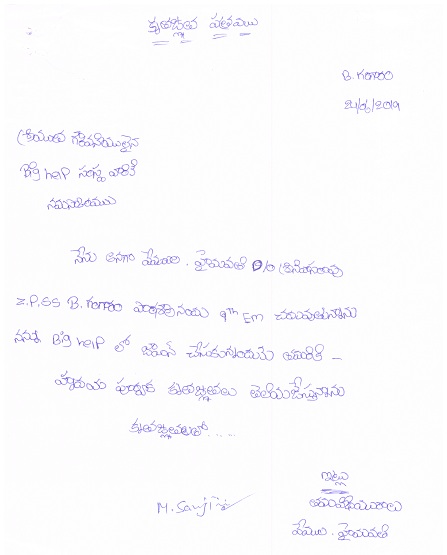 కృతజ్ఞత పత్రము
B. గంగారం
21/6/2019
శ్రీయుత గౌరవనీయులైన
Big help సంస్థ వారికి
నమస్కారములు
నేను అనగా వేముల. హైమవతి D/o శ్రీనివాసరావు
Z.P.SS B. గంగారం పాఠశాల నందు 9th Em చదువుతున్నాను
నన్ను Big help లో జాయిన్ చేసుకున్నందుకు
హృదయ పూర్వక కృతజ్ఞతలు తెలియజేస్తున్నాను
కృతజ్ఞతలతో.....
ఇట్లు
M. Sanji
తమ విధేయురాలు
వేముల. హైమవతి